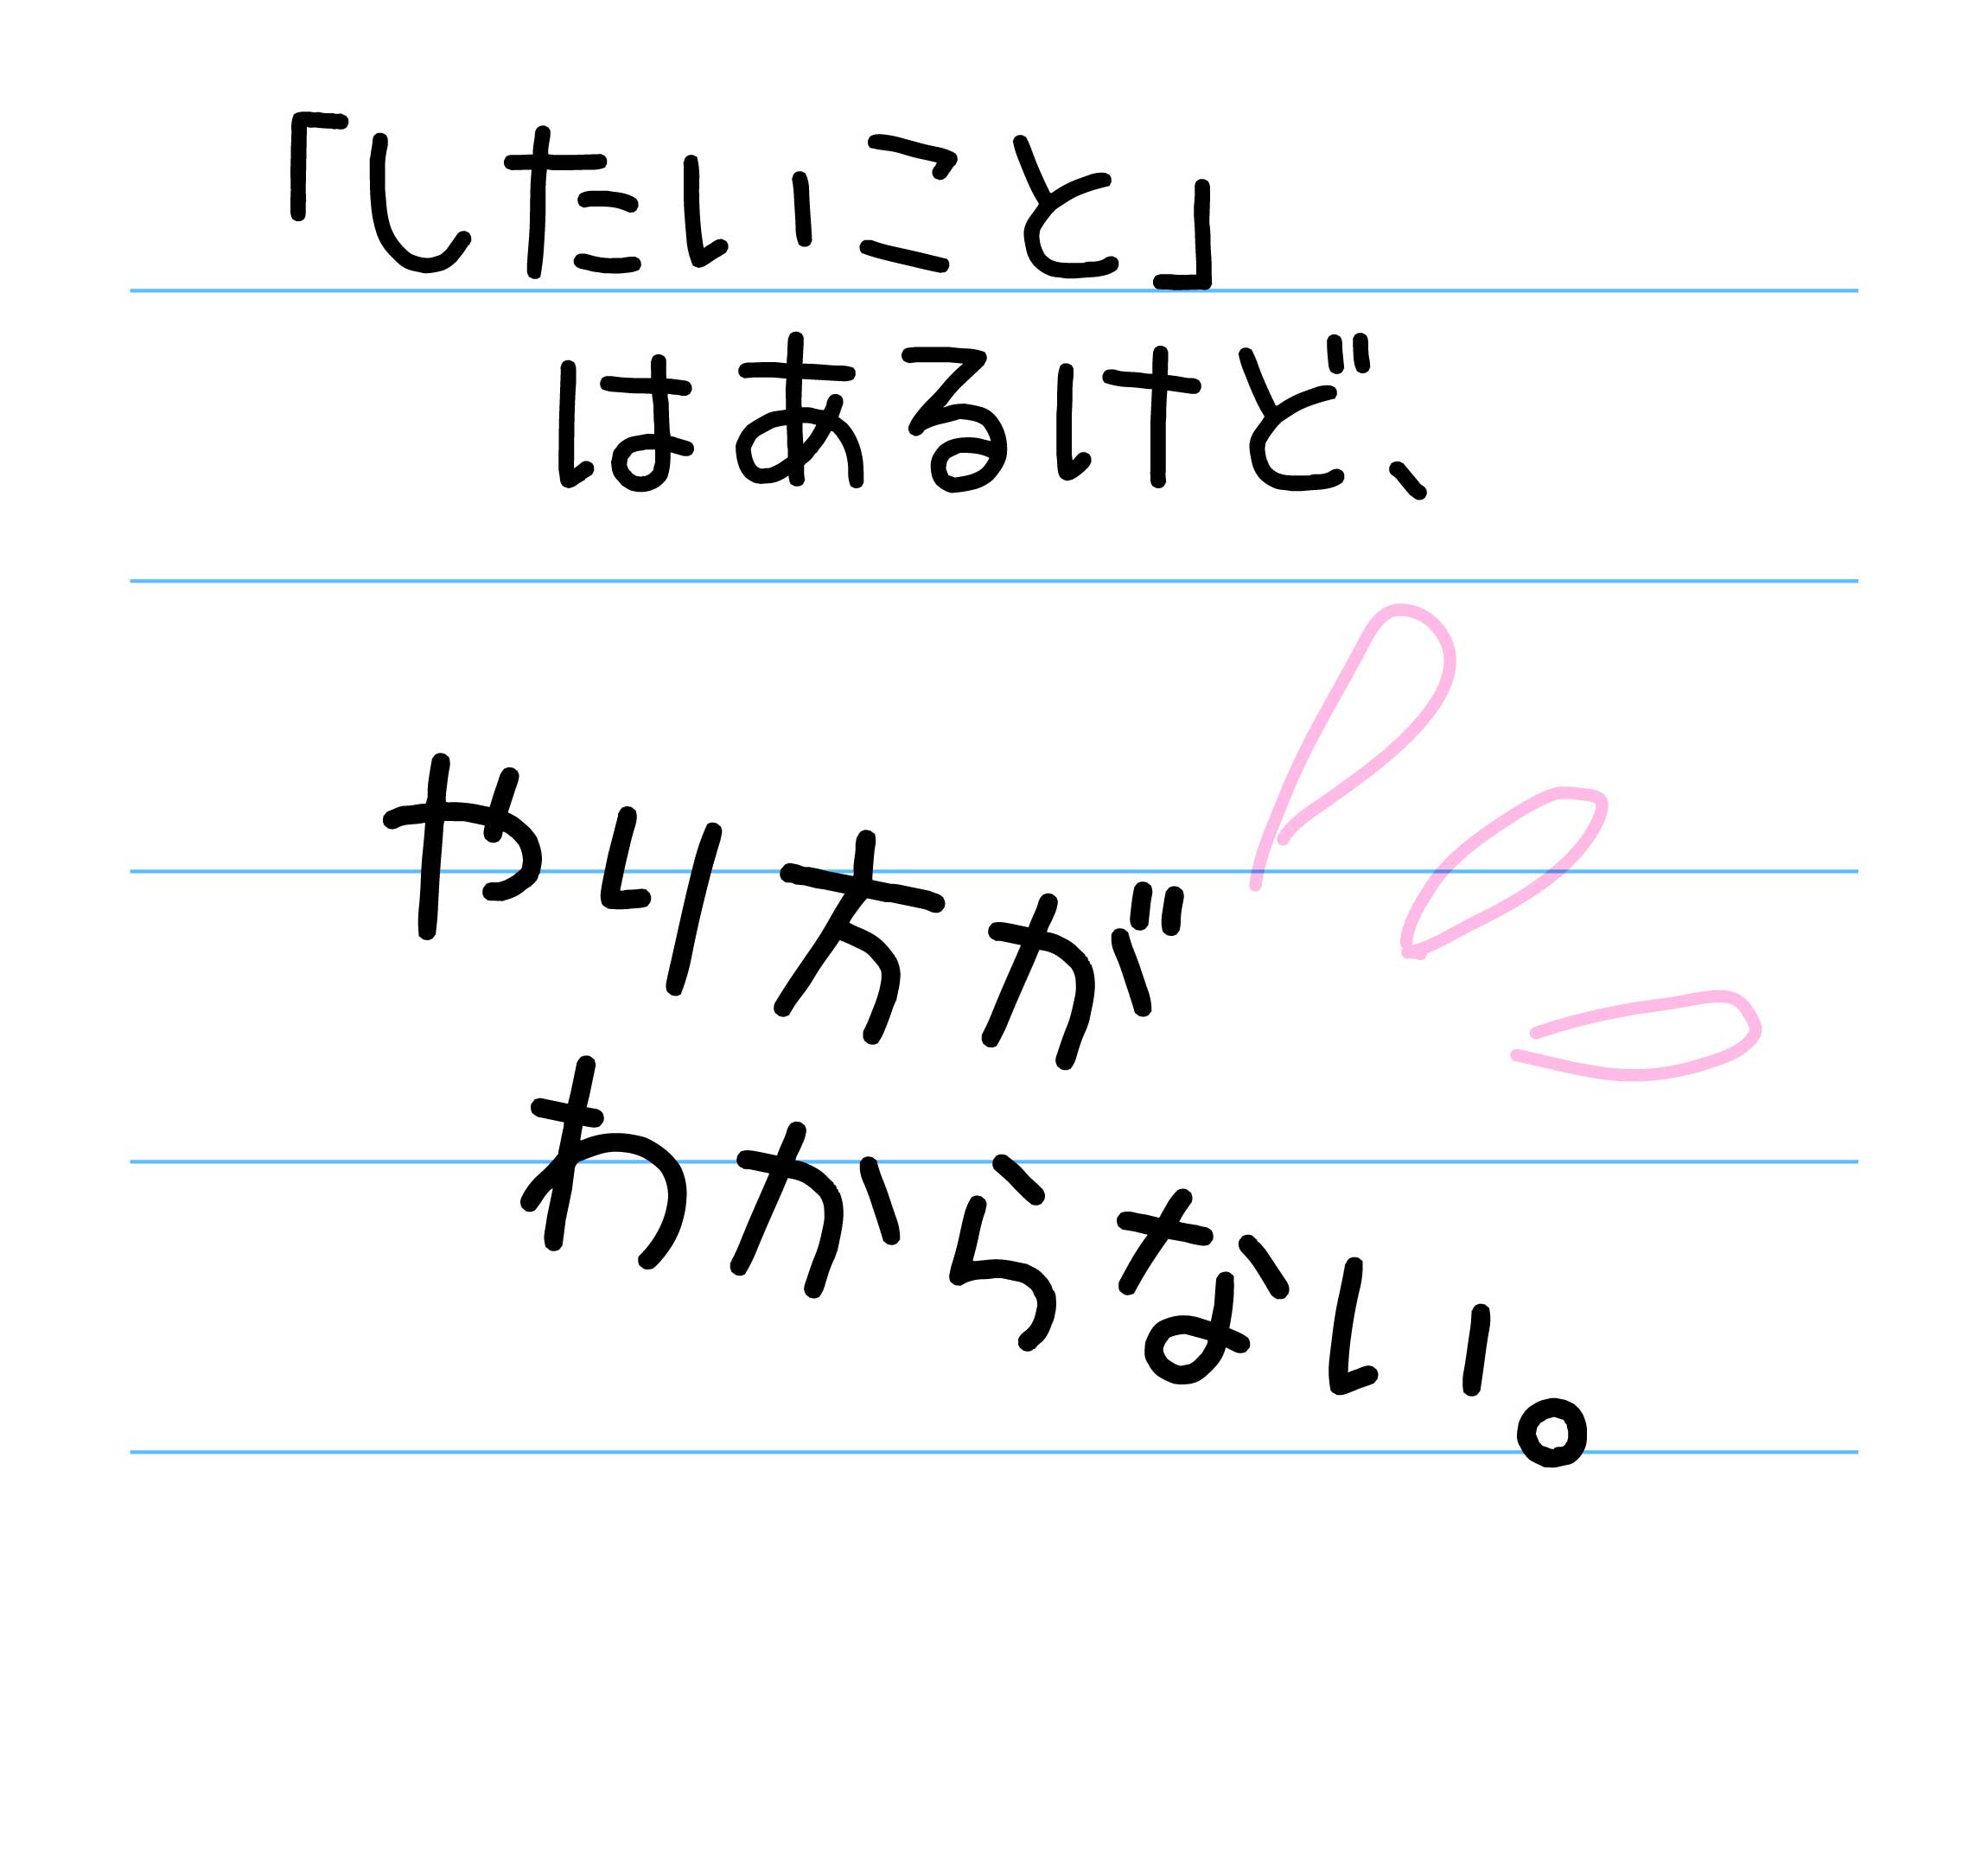 「したいこと」
はあるけど、
やり方が
わからない。